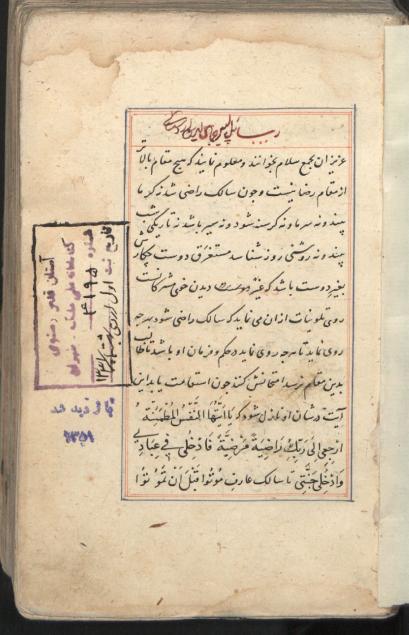 عزیزان بجمع سلام بخوانند و معلوم نمایند که هیچ مقام بالاتر
از مقام رضا نیست و چون سالک راضی شد نه گرما
بیند و نه سرما و نه گرسنه شود و نه سیر باشد نه تاریکی شب
بیند و نه روشنی روز شناسد مستغرق دوست
بغیر دوست باشد که غیر دیدن
روی تلونات از ان می نماید که سالک راضی شود بهر چه
روی نماید تا هر چه روی نماید در حکم و فرمان او باشد تا طالب
بدین مقام نرسد امتحانش کنند چون استقامت یابد این
آیت در شان او نازل شود که یا ایتها النفس المطمئنة
ارجعی الی ربک راضیة مرضیة فادخلی فی عبادی
وادخلی جنتی تا سالک عارف موتوا قبل ان تموتوا
آستان قدس رضوی
کتابخانه ملی ملک تهران
شماره ۴۱۹۵
تاریخ ثبت
بازدید شد
۱۳۵۸